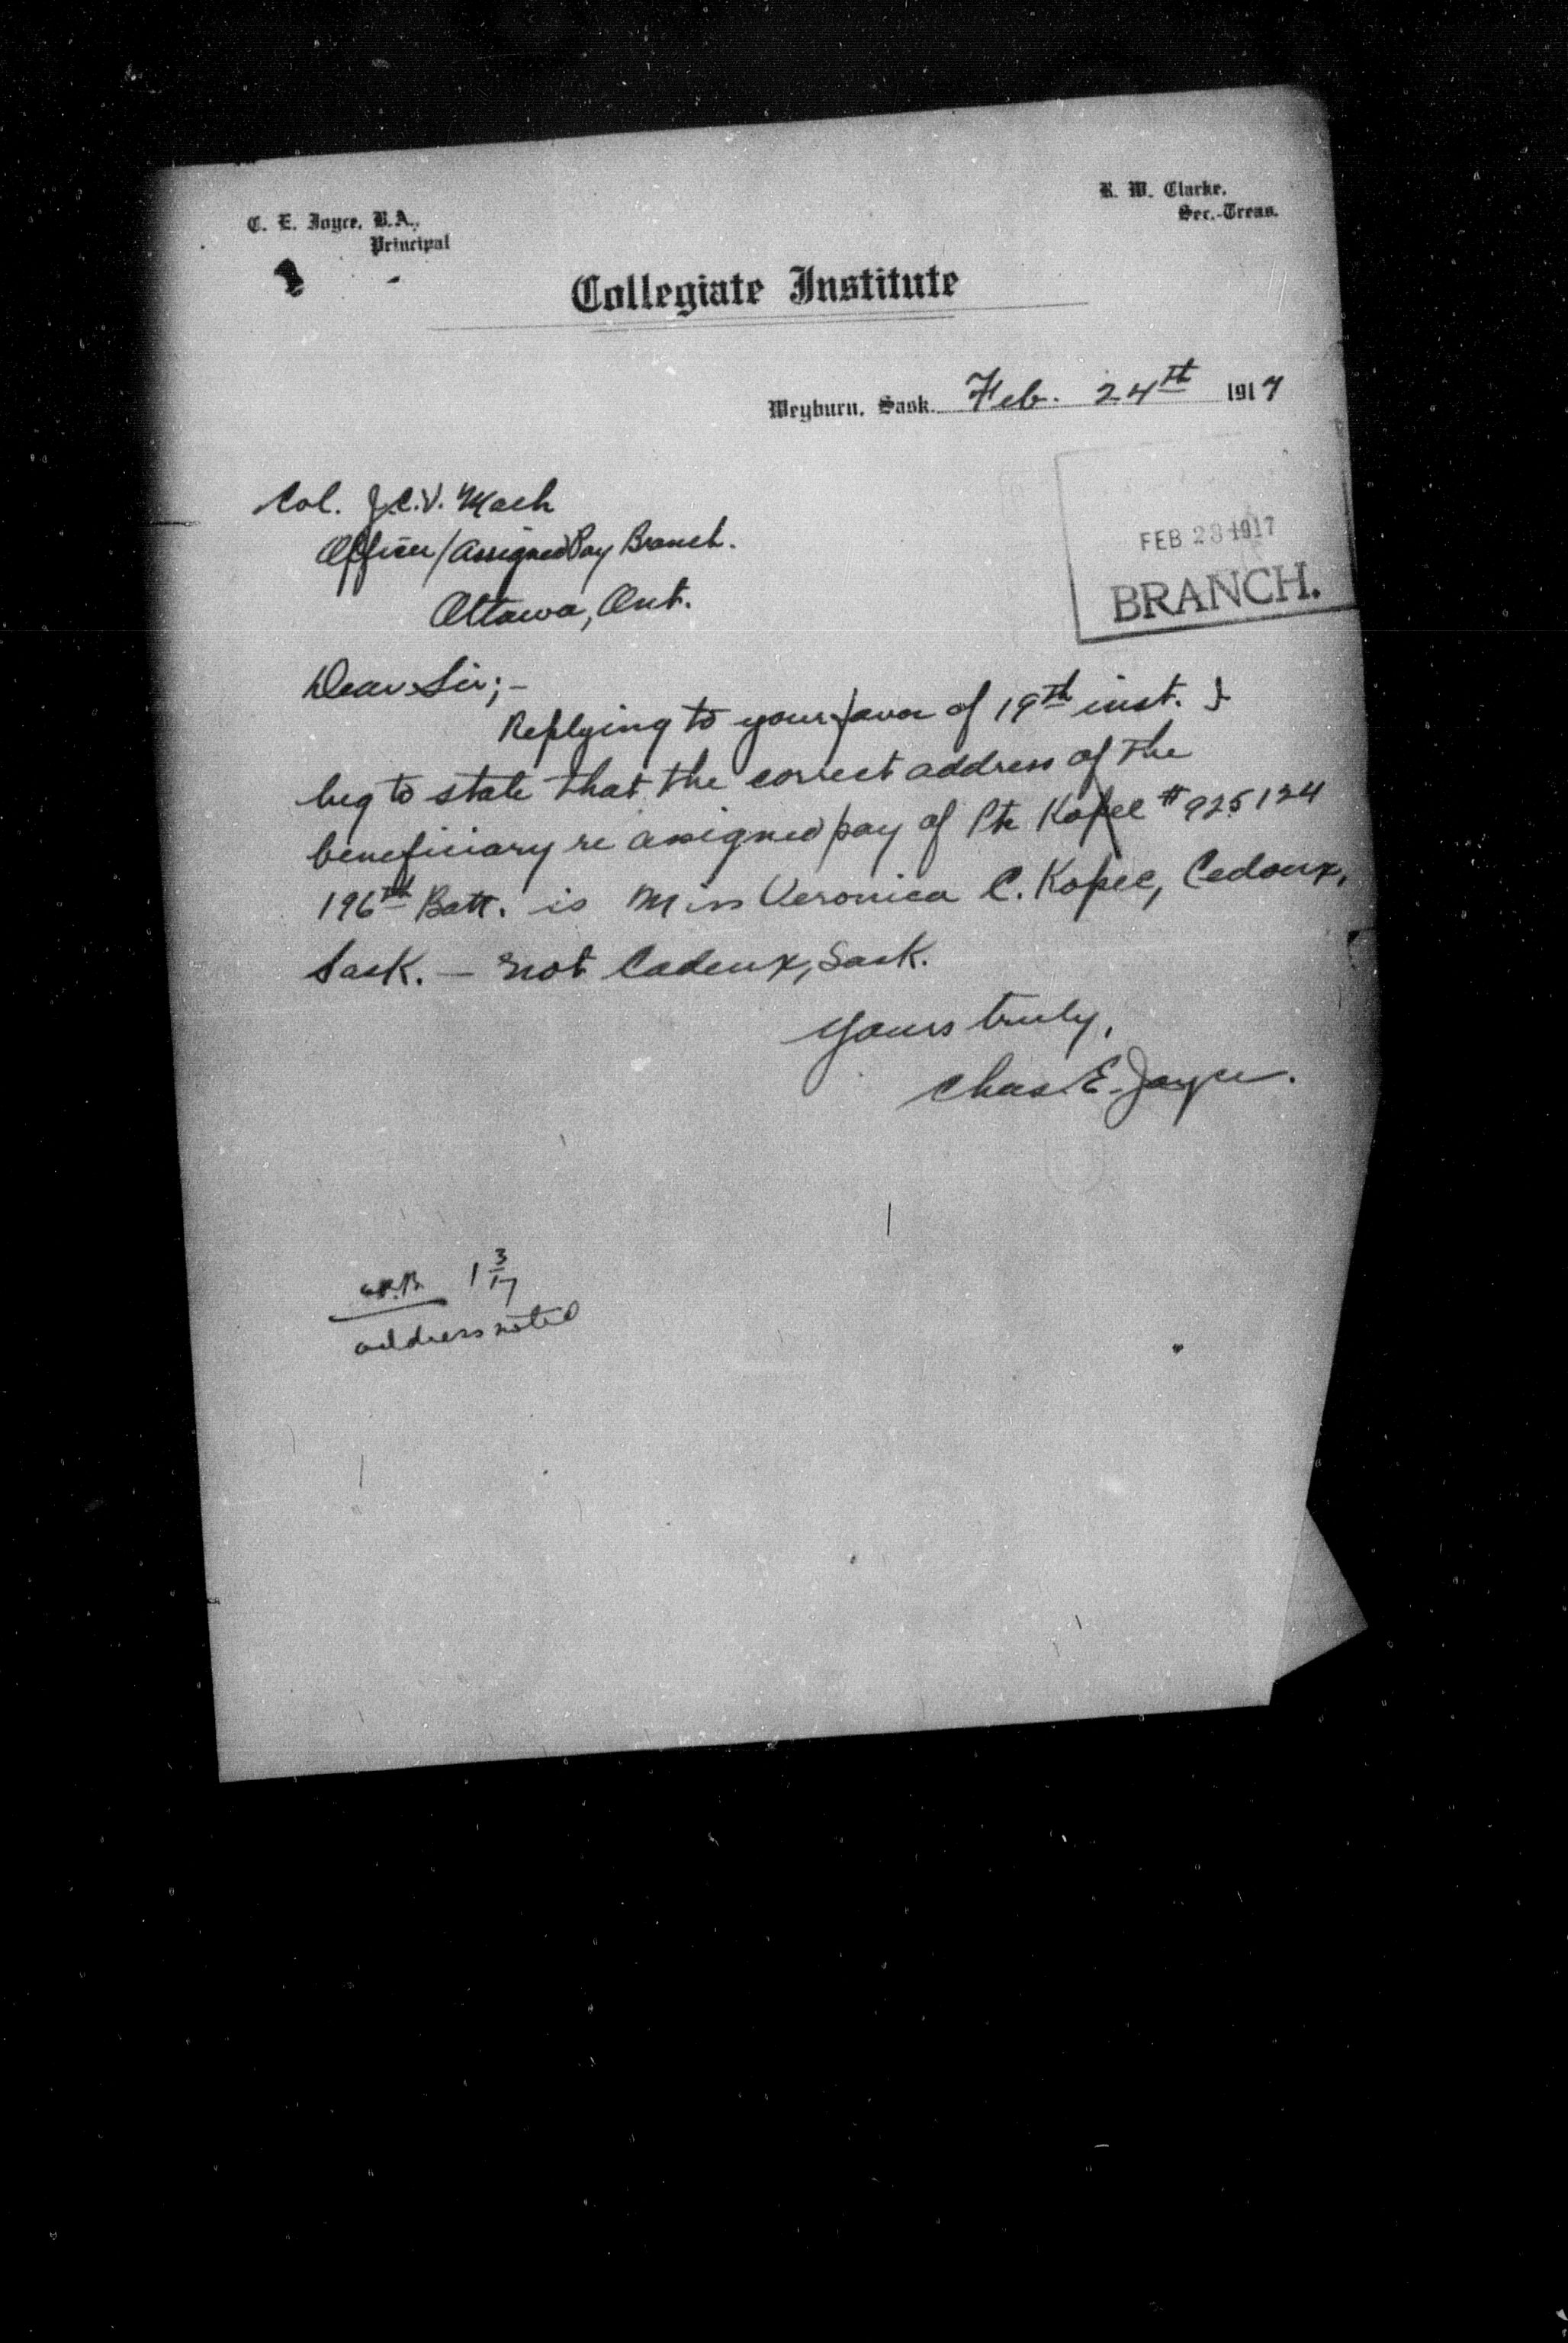 C. E. Joyce, B.A.,
Principal
R. W. Clarke,
Sec.-Treas.
Collegiate Institute
Weyburn, Sask. Feb. 24th 1917
Col. J.C.V. Mach
Officer/Assigned Pay Branch.
Ottawa, Ont.
FEB 28 1917
BRANCH.
Dear Sir;-
Replying to your favor of 19th inst. I
beg to state that the correct address of the
beneficiary re assigned pay of Pte Kopec #925124
196th Batt. is Miss Veronica C. Kopec, Cedoux,
Sask. — not Cadeux, Sask.
Yours truly,
Chas. E. Joyce.
1 3/17
address noted